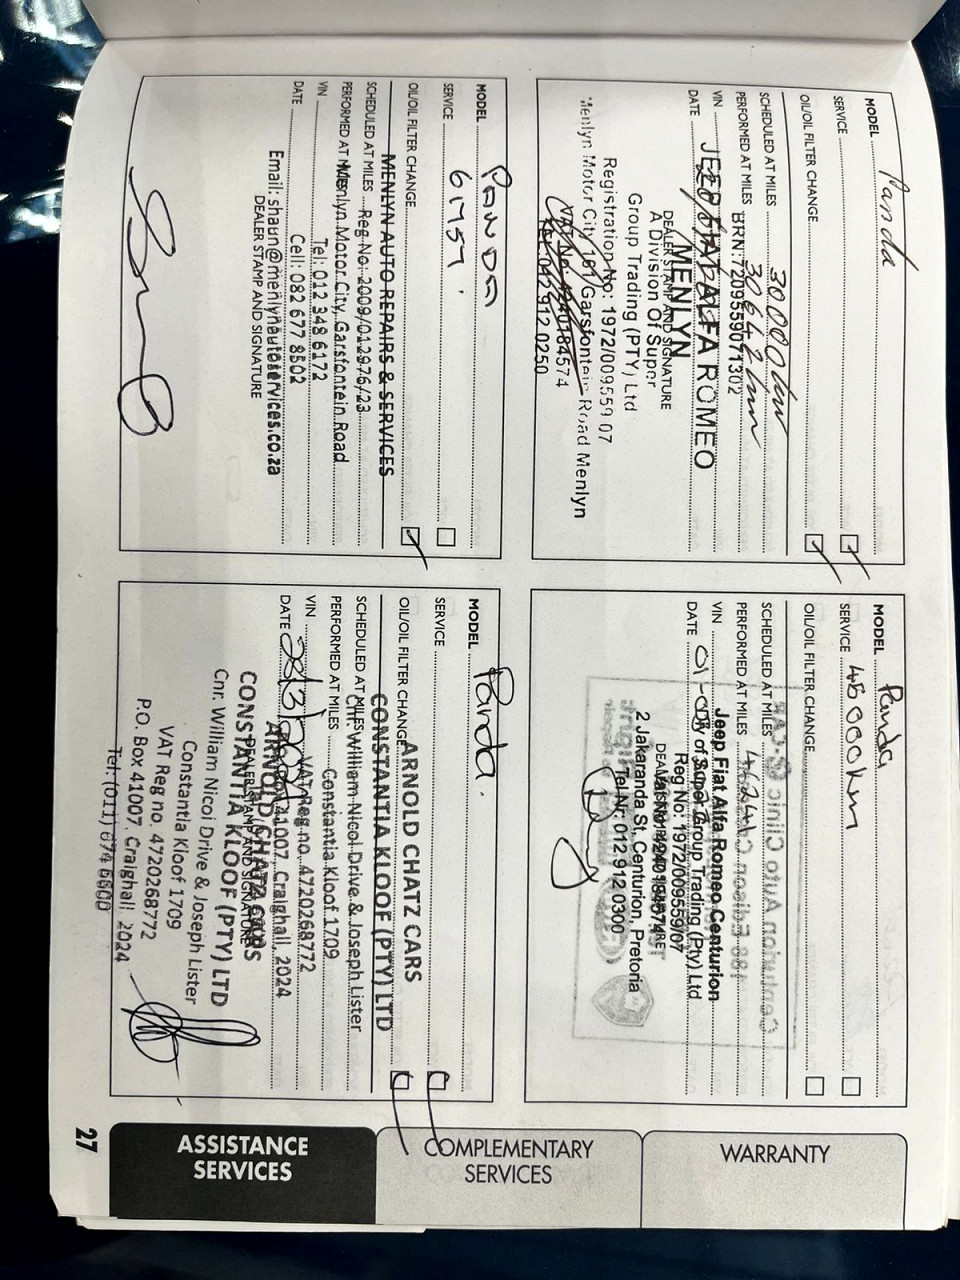 MODEL Panda
SERVICE
OIL/OIL FILTER CHANGE
SCHEDULED AT MILES 30 000 km
PERFORMED AT MILES 30642 km
BRN: 7209559071302
VIN
DATE
MENLYN
DEALER STAMP AND SIGNATURE
A Division Of Super
Group Trading (PTY) Ltd
Registration No: 1972/009559 07
Menlyn Motor City 161 Garsfontein Road Menlyn
VAT No: 4240184574
Tel: 012 912 0250
MODEL Panda
SERVICE 45 000 km
OIL/OIL FILTER CHANGE
SCHEDULED AT MILES
PERFORMED AT MILES
VIN
Jeep Fiat Alfa Romeo Centurion
DATE
A Div of Super Group Trading (Pty) Ltd
Reg No: 1972/009559/07
DEALER STAMP AND SIGNATURE
2 Jakaranda St, Centurion, Pretoria
Tel Nr: 012 912 0300
Centurion Auto Clinic
MODEL PANDA
SERVICE 61757
OIL/OIL FILTER CHANGE
MENLYN AUTO REPAIRS & SERVICES
SCHEDULED AT MILES
Reg No: 2009/012976/23
PERFORMED AT MILES
Menlyn Motor City, Garsfontein Road
VIN
Tel: 012 348 6172
DATE
Cell: 082 677 8502
Email: shaun@menlynautoservices.co.za
DEALER STAMP AND SIGNATURE
MODEL Panda
SERVICE
OIL/OIL FILTER CHANGE
ARNOLD CHATZ CARS
CONSTANTIA KLOOF (PTY) LTD
SCHEDULED AT MILES
Cnr. William Nicol Drive & Joseph Lister
PERFORMED AT MILES
Constantia Kloof 1709
VIN
VAT Reg no. 4720268772
DATE
P.O. Box 41007, Craighall, 2024
ARNOLD CHATZ CARS
DEALER STAMP AND SIGNATURE
CONSTANTIA KLOOF (PTY) LTD
Cnr. William Nicol Drive & Joseph Lister
Constantia Kloof 1709
VAT Reg no. 4720268772
P.O. Box 41007, Craighall, 2024
WARRANTY
COMPLEMENTARY
SERVICES
ASSISTANCE
SERVICES
27